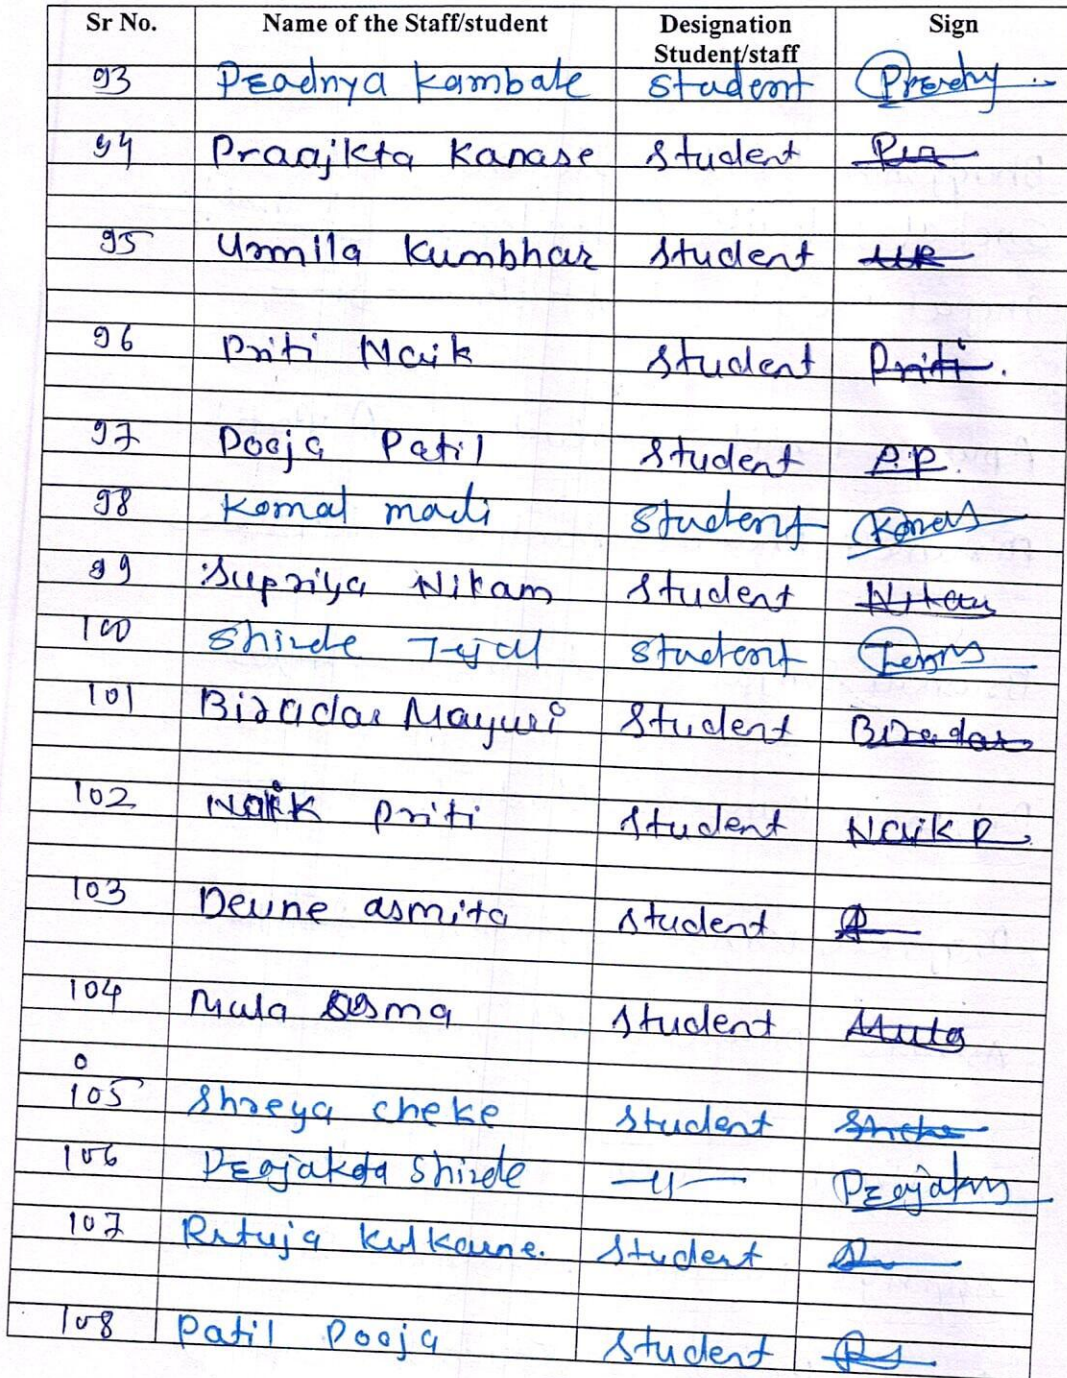 Sr No. Name of the Staff/student Designation Student/staff Sign
93 Pradnya Kambale Student
94 Praajkta Kanase Student
95 Urmila Kumbhar Student
96 Priti Naik Student Priti.
97 Pooja Patil Student P.P.
98 Komal madi Student Komal
99 Supriya Nikam Student Nikam
100 Shinde Tejal Student
101 Biradar Mayuri Student Biradar
102 Naik Priti Student Naik P.
103 Devne asmita Student
104 Mula asma Student Mula
105 Shreya cheke Student
106 Prajakda Shinde —〃—
107 Rutuja kulkarne. Student
108 Patil Pooja Student